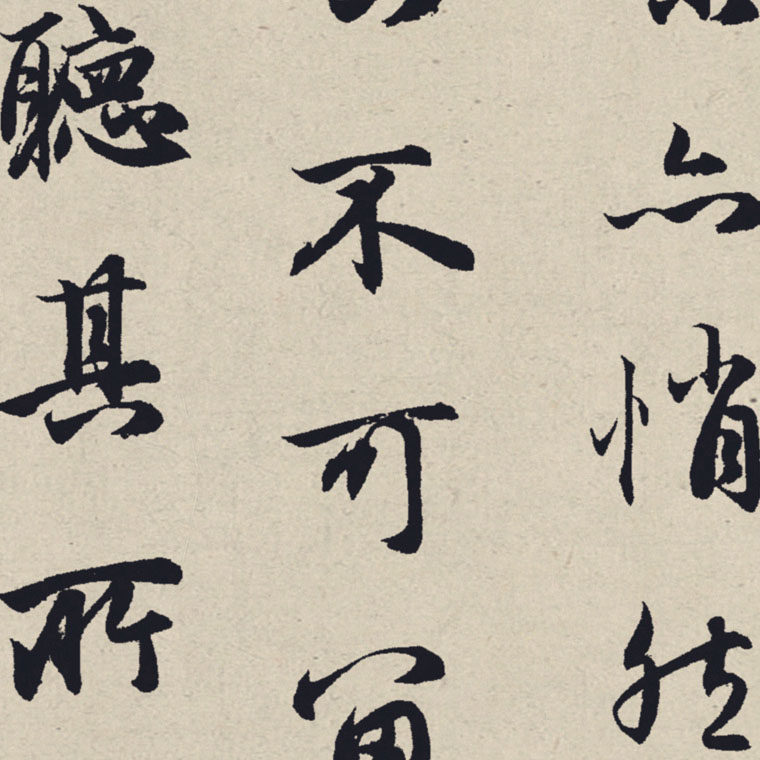 亦悄然
不可留
聽其所